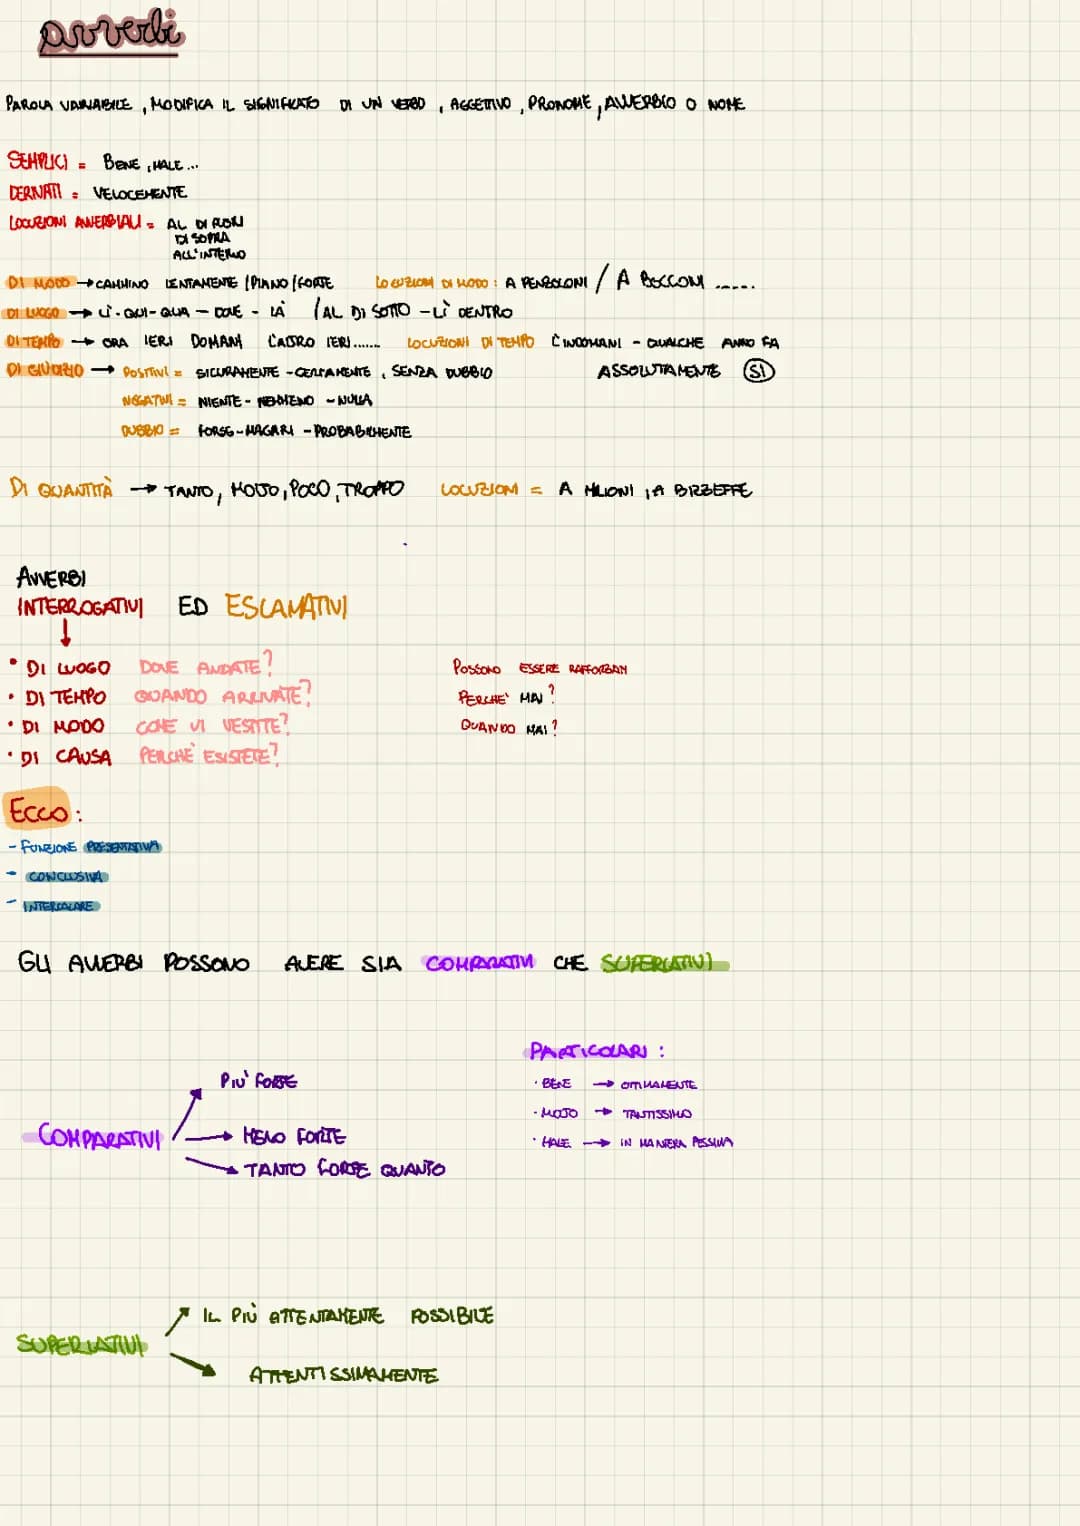 avverbi
PAROLA VARIABILE, MODIFICA IL SIGNIFICATO DI UN VERBO, AGGETTIVO, PRONOME, AVVERBIO O NOME
SEMPLICI = BENE, MALE...
DERIVATI = VELOCEMENTE
LOCUZIONI AVVERBIALI = AL DI FUORI
DI SOPRA
ALL'INTERNO
DI MODO → CAMMINO LENTAMENTE / PIANO / FORTE LOCUZIONI DI MODO: A PENZOLONI / A BOCCONI ......
DI LUOGO → LÌ - QUI - QUA - DOVE - LÀ / AL DI SOTTO - LÌ DENTRO
DI TEMPO → ORA IERI DOMANI L'ALTRO IERI...... LOCUZIONI DI TEMPO L'INDOMANI - QUALCHE ANNO FA
DI GIUDIZIO → POSITIVI = SICURAMENTE - CERTAMENTE, SENZA DUBBIO ASSOLUTAMENTE SI
NEGATIVI = NIENTE - NEMMENO - NULLA
DUBBIO = FORSE - MAGARI - PROBABILMENTE
DI QUANTITÀ → TANTO, MOLTO, POCO, TROPPO LOCUZIONI = A MILIONI, A BIZZEFFE
AVVERBI
INTERROGATIVI ED ESCLAMATIVI
• DI LUOGO DOVE ANDATE?
• DI TEMPO QUANDO ARRIVATE?
• DI MODO COME VI VESTITE?
• DI CAUSA PERCHÈ ESISTETE?
POSSONO ESSERE RAFFORZATI
PERCHE' MAI?
QUANDO MAI?
ECCO:
- FUNZIONE PRESENTATIVA
- CONCLUSIVA
- INTERCALARE
GLI AVVERBI POSSONO AVERE SIA COMPARATIVI CHE SUPERLATIVI
PARTICOLARI:
• BENE → OTTIMAMENTE
• MOLTO → TANTISSIMO
• MALE → IN MANIERA PESSIMA
COMPARATIVI
PIU' FORTE
MENO FORTE
TANTO FORTE QUANTO
SUPERLATIVI
IL PIÙ ATTENTAMENTE POSSIBILE
ATTENTISSIMAMENTE